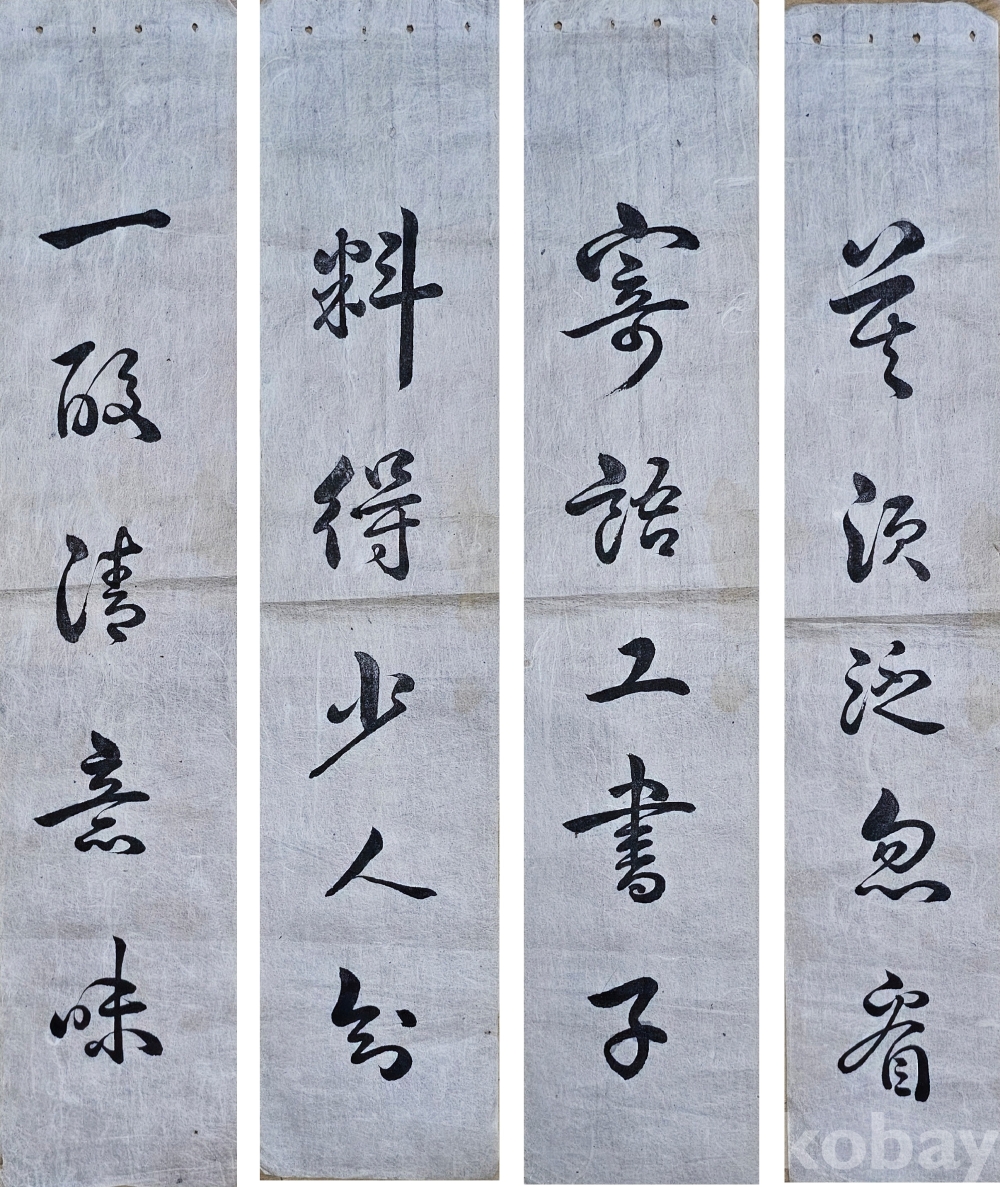 一般清意味
料得少人知
寄語工書子
莫須泛忽看
kobay